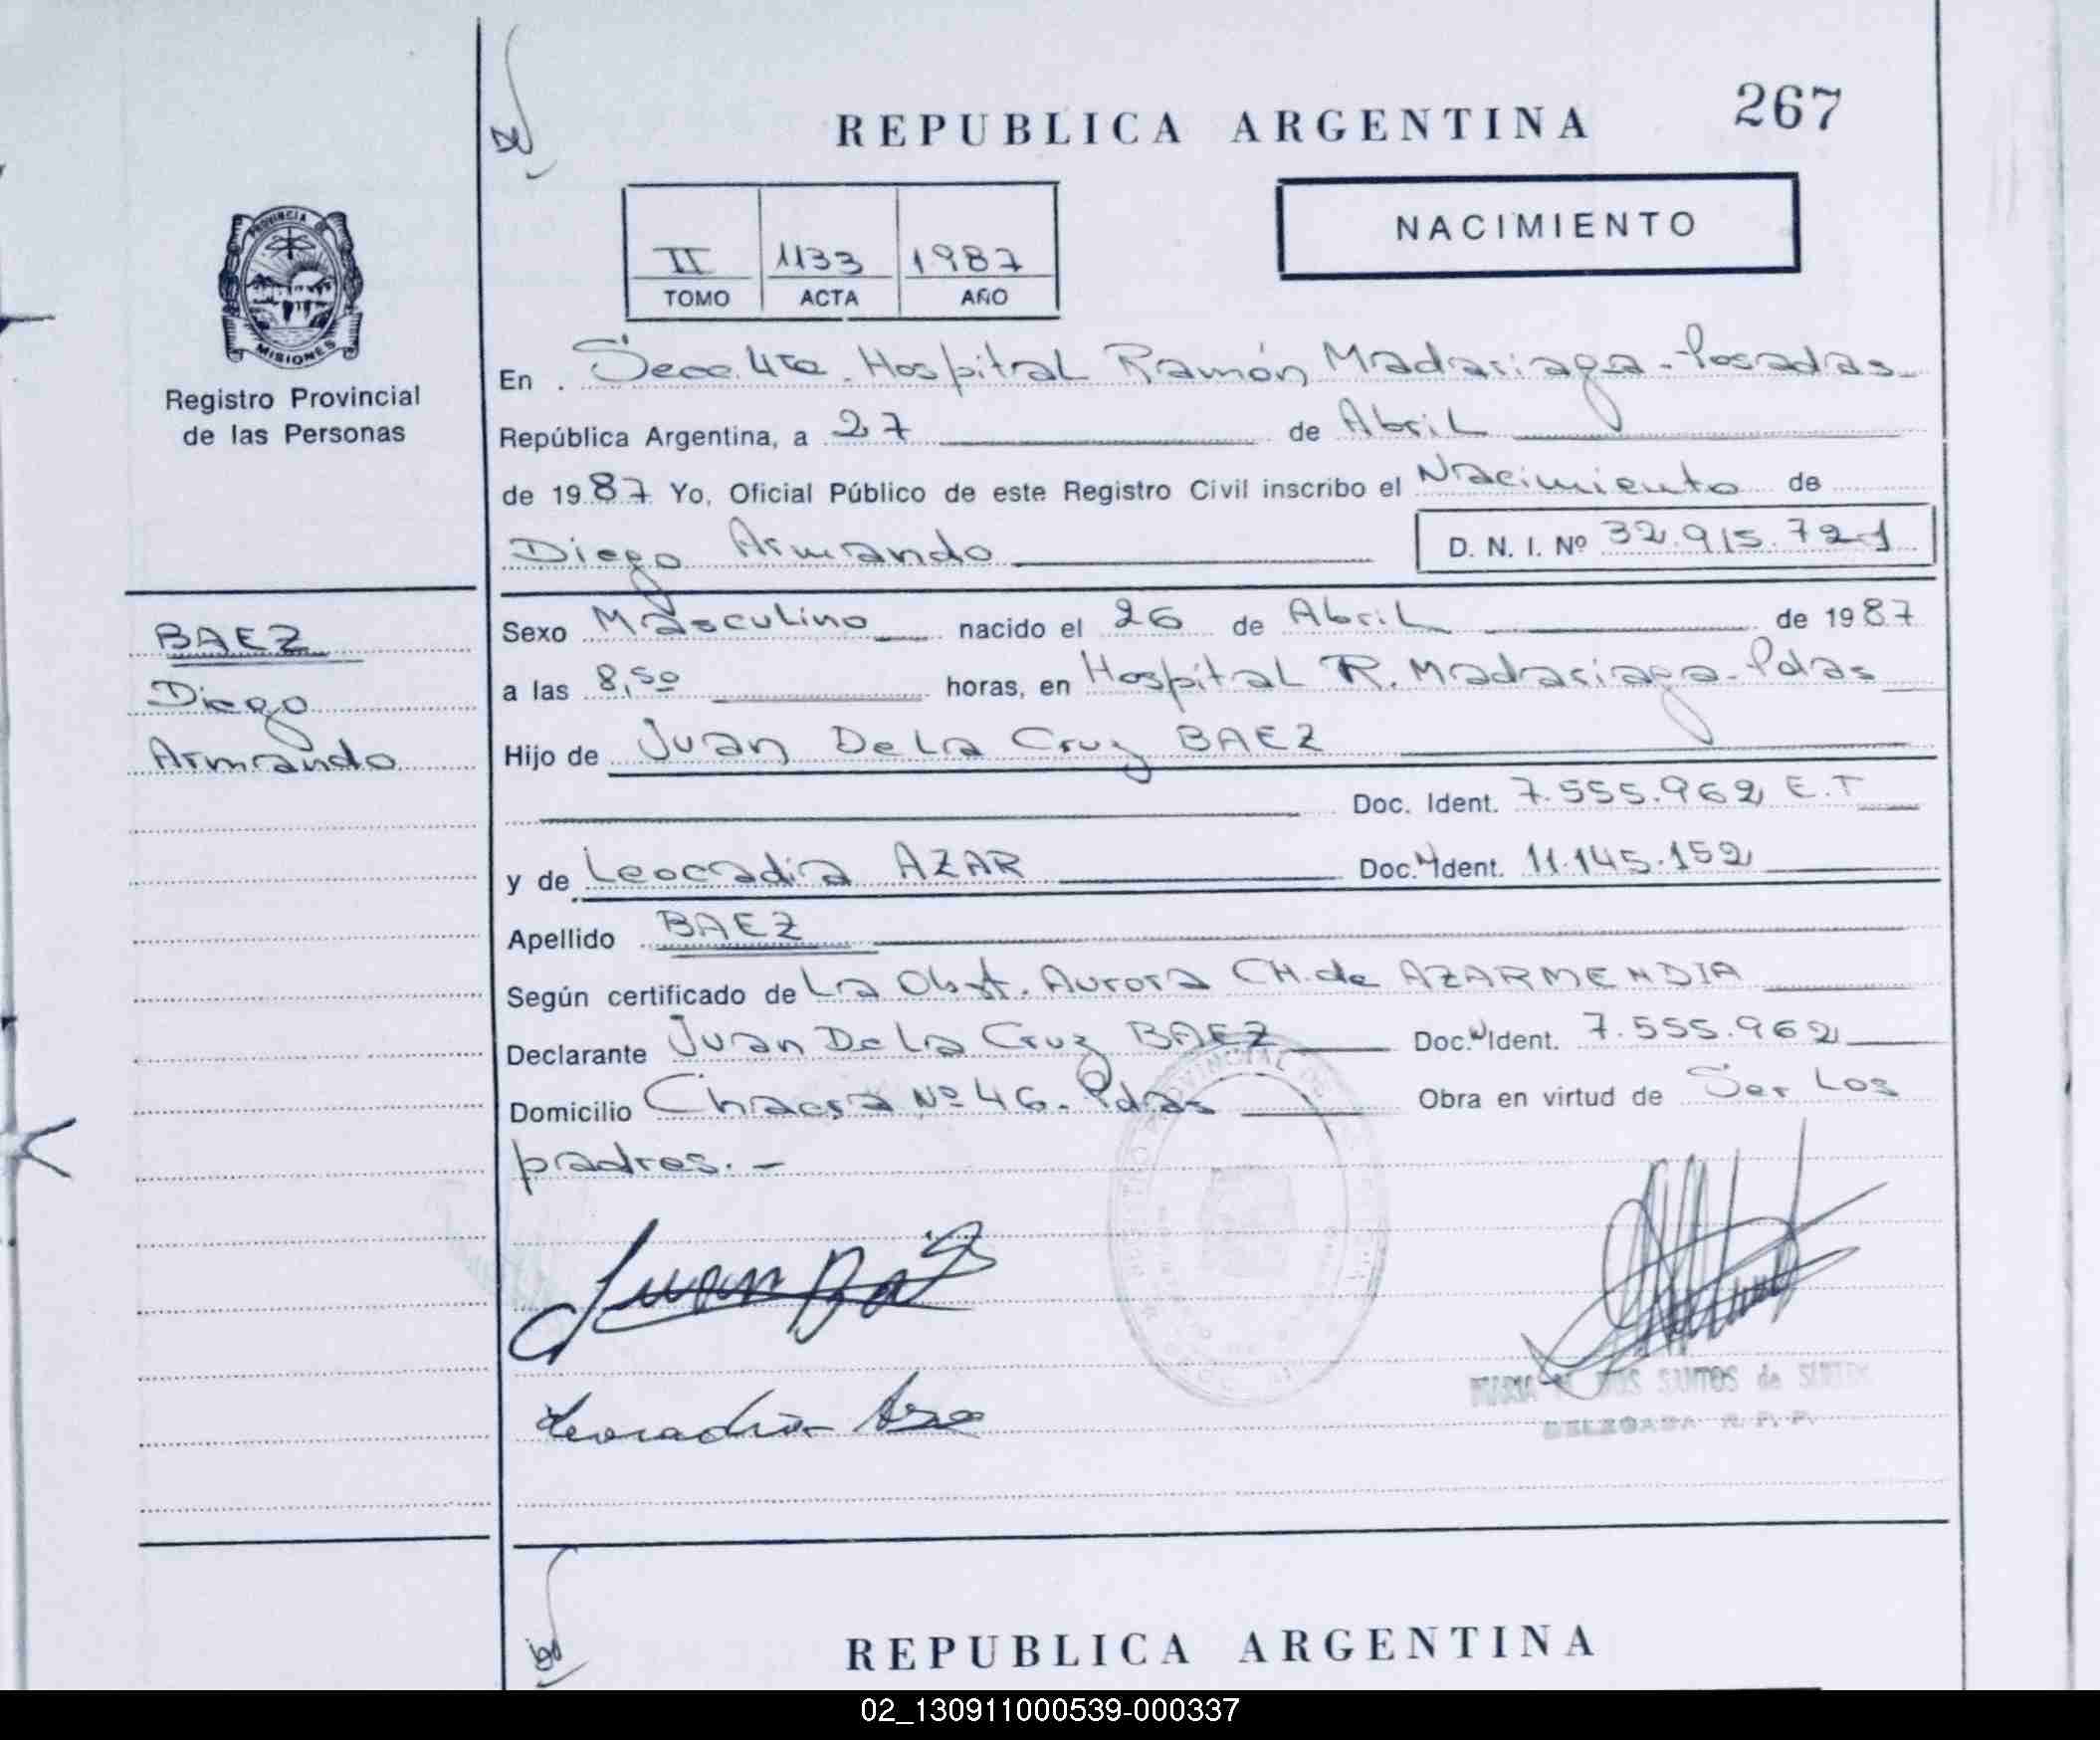 REPUBLICA ARGENTINA
267
II 1133 1987
TOMO ACTA AÑO
NACIMIENTO
PROVINCIA DE
MISIONES
Registro Provincial
de las Personas
En Secc. 4ta. Hospital Ramón Madariaga - Posadas
República Argentina, a 27 de Abril
de 1987 Yo, Oficial Público de este Registro Civil inscribo el Nacimiento de
Diego Armando D. N. I. Nº 32.915.721
BAEZ
Diego
Armando
Sexo Masculino nacido el 26 de Abril de 1987
a las 8,50 horas, en Hospital R. Madariaga - Pdas
Hijo de Juan De La Cruz BAEZ
Doc. Ident. 7.555.962 E.T
y de Leocadia AZAR Doc. Ident. 11.145.152
Apellido BAEZ
Según certificado de La Obst. Aurora CH. de AZARMENDIA
Declarante Juan De La Cruz BAEZ Doc. Ident. 7.555.962
Domicilio Chacra Nº 46. Pdas Obra en virtud de Ser Los
padres. -
Juan Baez
Leocadia
DOS SANTOS de
DELEGADA R. P. P.
REPUBLICA ARGENTINA
02_130911000539-000337